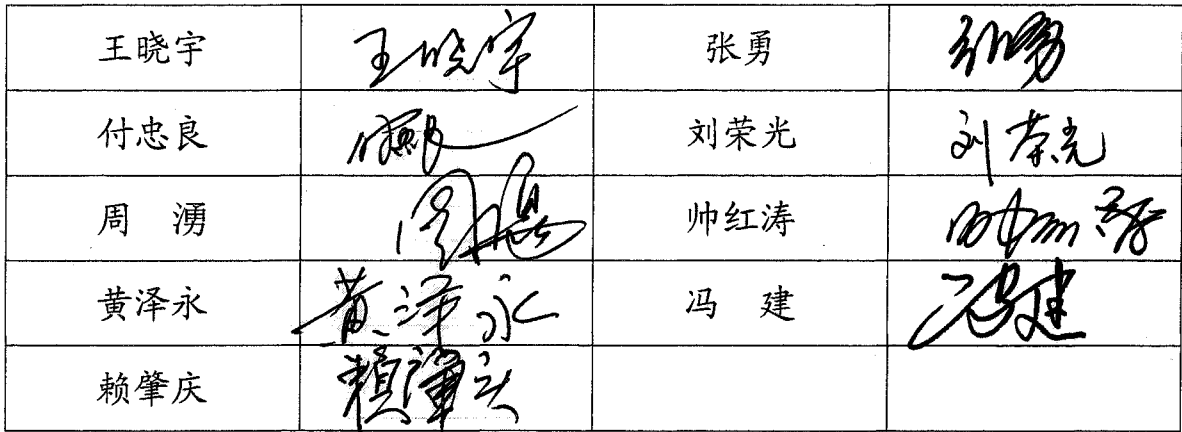 王晓宇 王晓宇 张勇 张勇
付忠良 付忠良 刘荣光 刘荣光
周 湧 周湧 帅红涛 帅红涛
黄泽永 黄泽永 冯 建 冯建
赖肇庆 赖肇庆